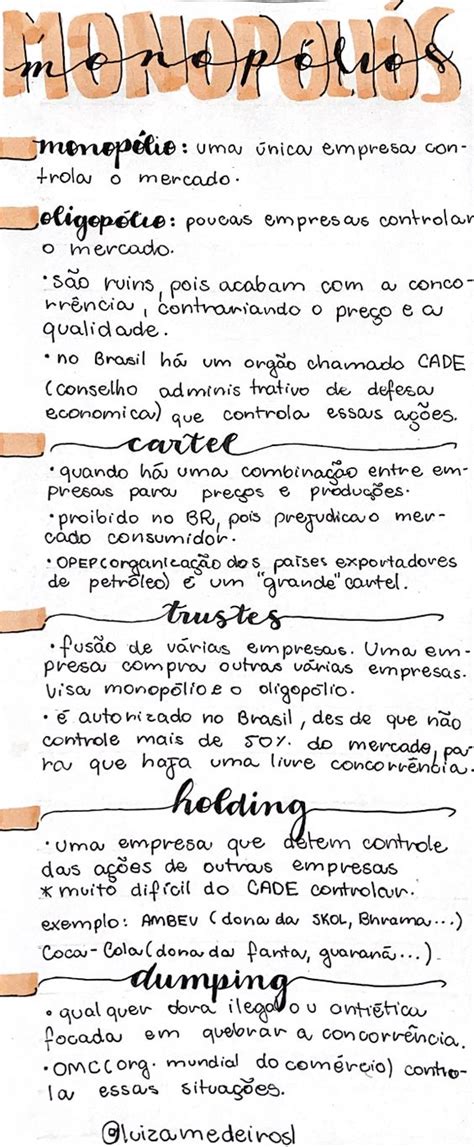 MONOPÓLIOS
monopólios
monopólio: uma única empresa con-
trola o mercado.
oligopólio: poucas empresas controlar
o mercado.
•são ruins, pois acabam com a conco-
rrência, contrariando o preço e a
qualidade.
•no Brasil há um orgão chamado CADE
(conselho administrativo de defesa
economica) que controla essas ações.
cartel
•quando há uma combinação entre em-
presas para preços e produções.
•proibido no BR, pois prejudica o mer-
cado consumidor.
•OPEP(organização dos países exportadores
de petróleo) é um "grande" cartel.
trustes
•fusão de várias empresas. Uma em-
presa compra outras várias empresas.
Visa monopólio e o oligopólio.
•é autorizado no Brasil, desde que não
controle mais de 50% do mercado, pa-
ra que haja uma livre concorrência.
holding
•uma empresa que detem controle
das ações de outras empresas
* muito difícil do CADE controlar.
exemplo: AMBEV (dona da SKOL, Bhrama...)
Coca-Cola(dona da fanta, guaraná...).
dumping
•qualquer obra ilegal ou antiética
focada em quebrar a concorrência.
•OMC(org. mundial do comércio) contro-
la essas situações.
@luizamedeirosl